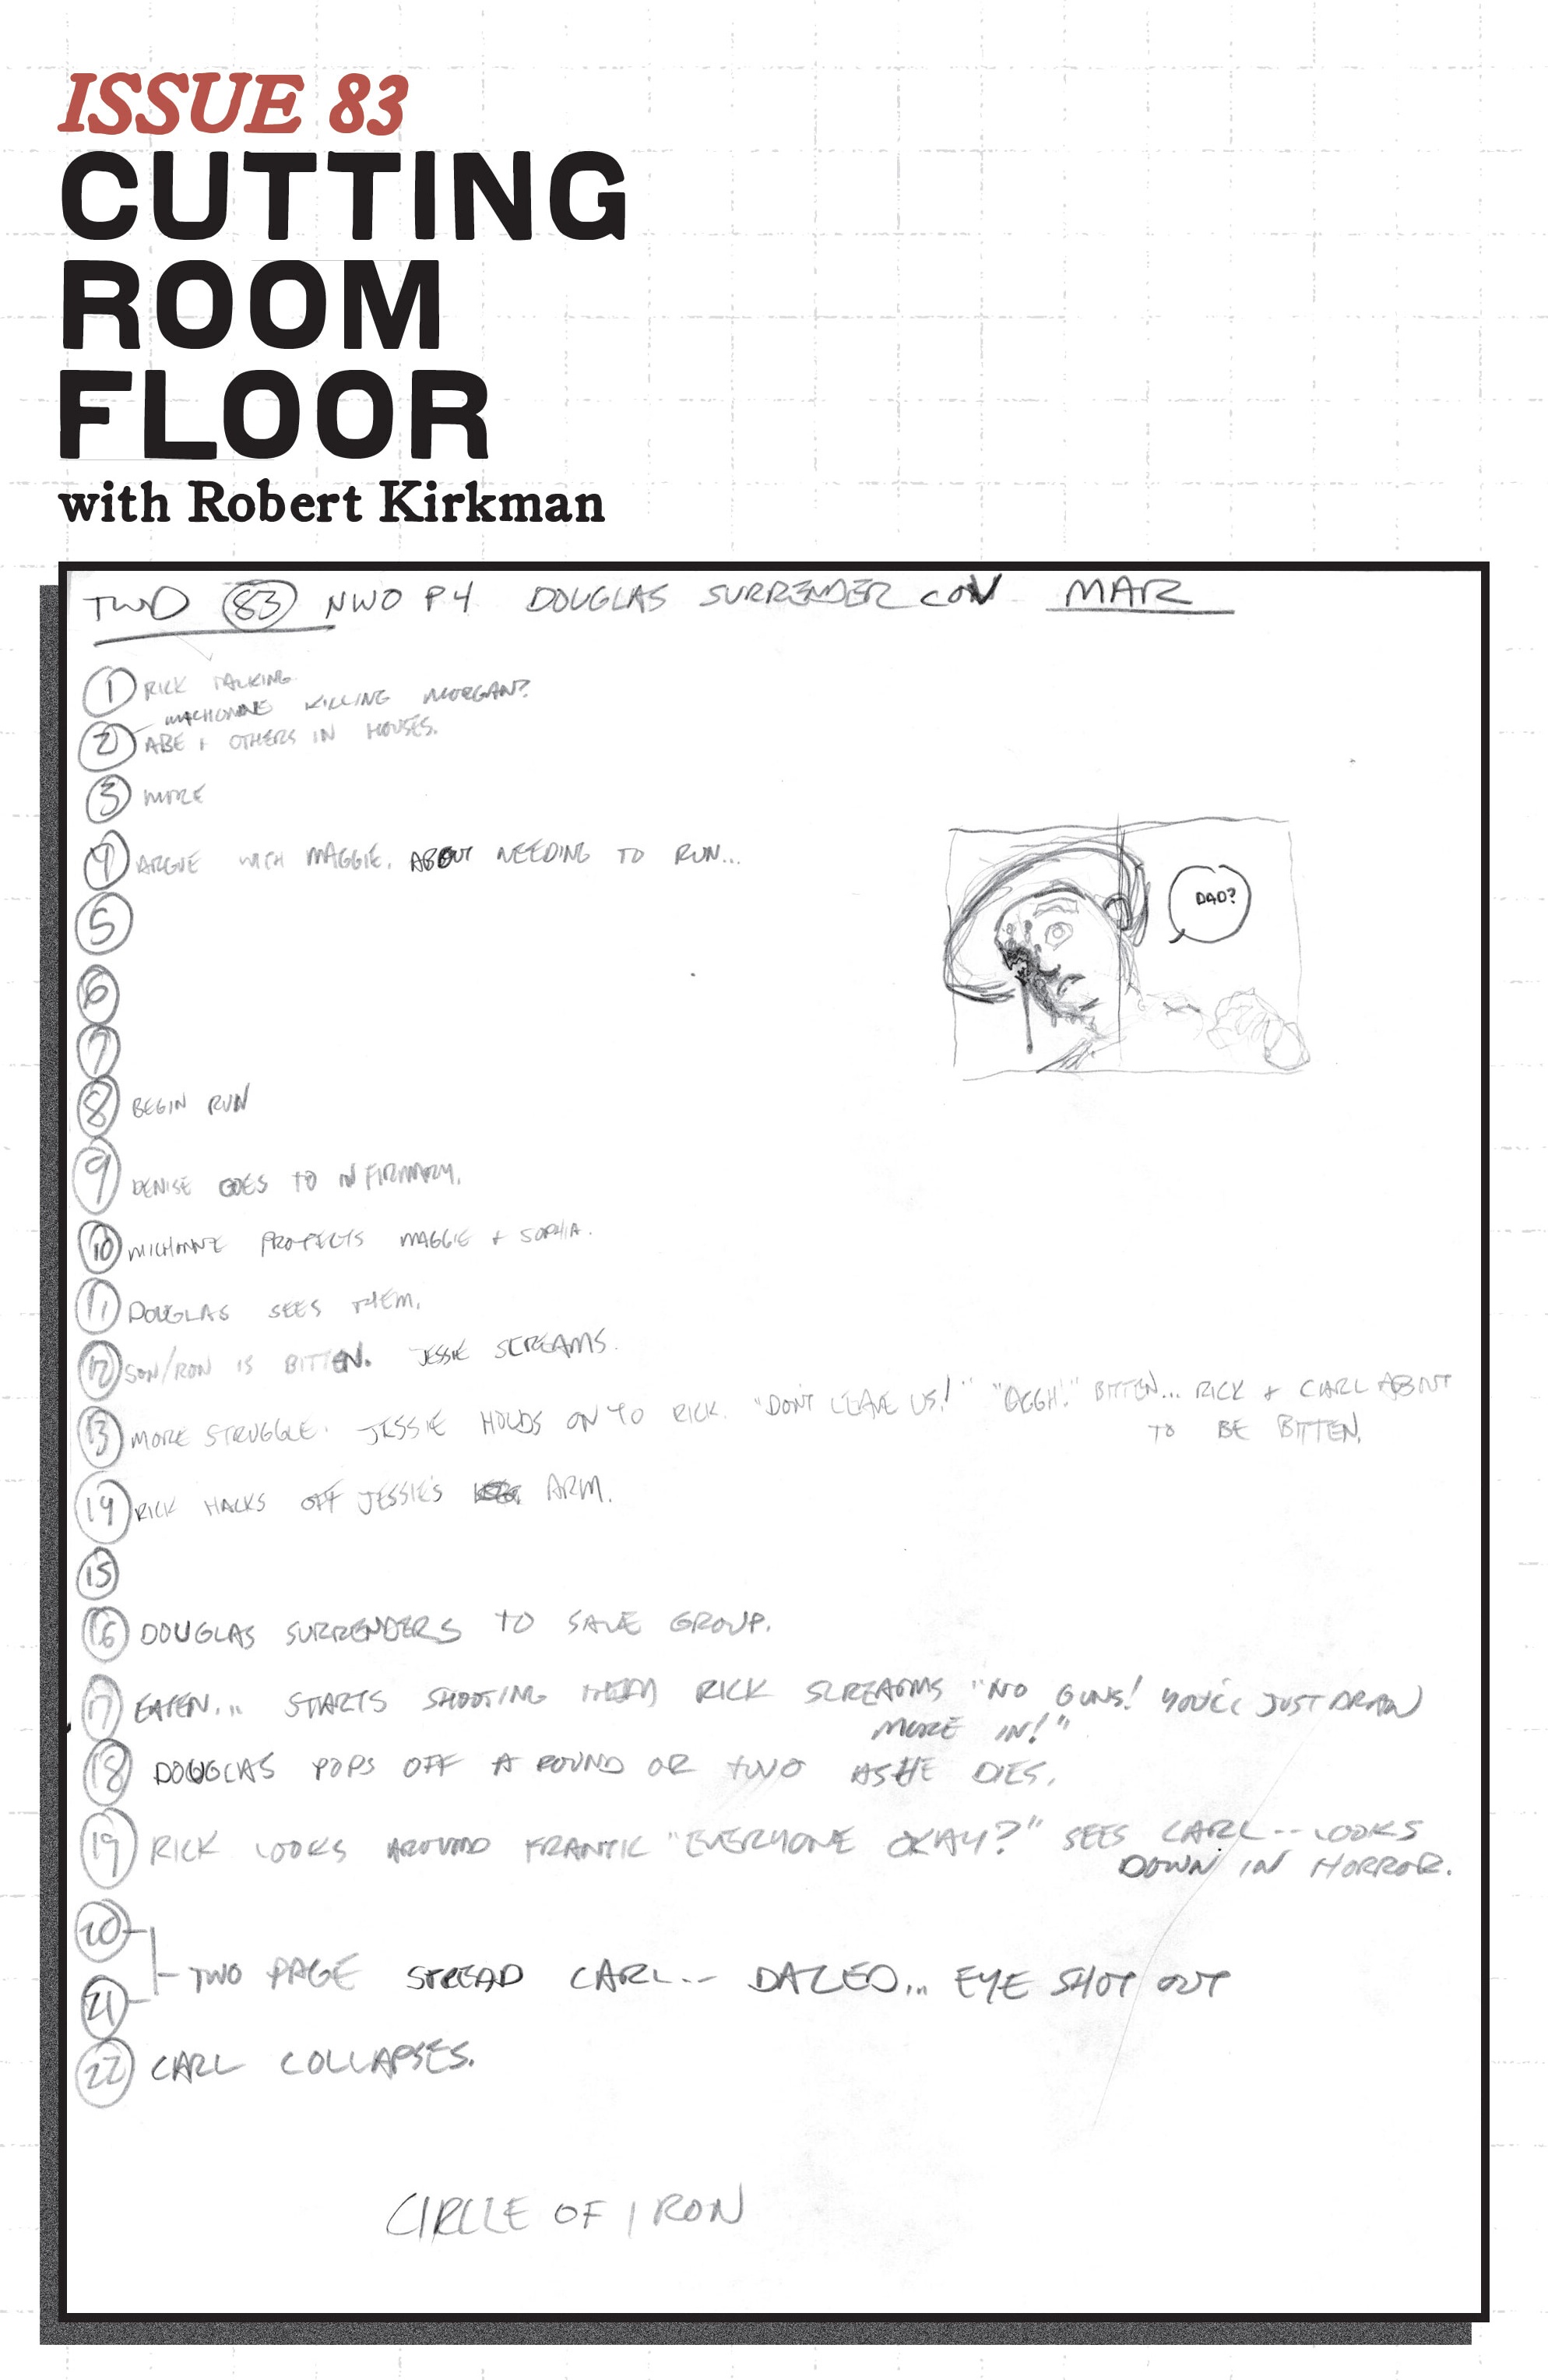 ISSUE 83
CUTTING
ROOM
FLOOR
with Robert Kirkman
TWD 83 NWO P4 DOUGLAS SURRENDER COV MAR
1 RICK TALKING
MICHONNE KILLING MORGAN?
2 ABE + OTHERS IN HOUSES.
3 MORE
4 ARGUE WITH MAGGIE. ABOUT NEEDING TO RUN...
DAD?
5
6
7
8 BEGIN RUN
9 DENISE GOES TO INFIRMARY.
10 MICHONNE PROTECTS MAGGIE + SOPHIA.
11 DOUGLAS SEES THEM.
12 SON/RON IS BITTEN. JESSIE SCREAMS.
13 MORE STRUGGLE. JESSIE HOLDS ON TO RICK. "DON'T LEAVE US!" "OGGH!" BITTEN... RICK + CARL ABOUT
TO BE BITTEN.
14 RICK HACKS OFF JESSIE'S ARM.
15
16 DOUGLAS SURRENDERS TO SAVE GROUP.
17 EATEN... STARTS SHOOTING THEM RICK SCREAMS "NO GUNS! YOU'LL JUST DRAW
MORE IN!"
18 DOUGLAS POPS OFF A ROUND OR TWO AS HE DIES.
19 RICK LOOKS AROUND FRANTIC "EVERYONE OKAY?" SEES CARL-- LOOKS
DOWN IN HORROR.
20
TWO PAGE STREAD CARL-- DAZED... EYE SHOT OUT
21
22 CARL COLLAPSES.
CIRCLE OF IRON